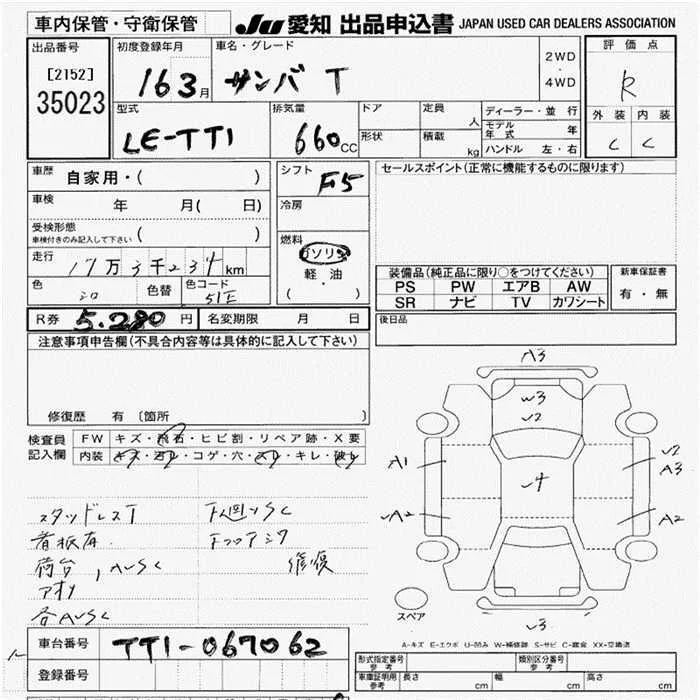 車内保管・守衛保管
JU 愛知 出品申込書 JAPAN USED CAR DEALERS ASSOCIATION
出品番号
[2152]
35023
初度登録年月
16 3月
車名・グレード
サンバ T
2WD
・
4WD
評価点
R
外装 内装
C C
型式
LE-TT1
排気量
660cc
ドア
形状
定員
人
積載
kg
ディーラー・並行
モデル年式 年
ハンドル 左・右
車歴 自家用・( )
車検 年 月( 日)
受検形態
車検付きのみ記入して下さい ( )
走行 17万3千234km
色 シロ 色替 色コード 51E
シフト F5
冷房
燃料
ガソリン
軽・油
( ・ )
セールスポイント(正常に機能するものに限ります)
装備品(純正品に限り○をつけてください)
PS PW エアB AW
SR ナビ TV カワシート
新車保証書
有・無
R券 5.280円 名変期限 月 日
後日品
注意事項申告欄(不具合内容等は具体的に記入して下さい)
修復歴 有 〔箇所 〕
検査員記入欄
FW キズ・飛石・ヒビ割・リペア跡・X要
内装 キズ・汚レ・コゲ・穴・スレ・キレ・破レ
A3
W3
U2
A1
U4
U2
A3
UA2
A2
スペア
U3
スタッドレスT
看板有
荷台, AUSC
アオリ
各AUSC
下廻りSC
Fフロアシタ
修復
A-キズ E-エクボ U-凹み W-補修跡 S-サビ C-腐食 XX-交換済
車台番号 TT1-067062
登録番号
形式指定番号
参考
類別区分番号
参考
車庫証明用
参考
長さ cm 幅 cm 高さ cm